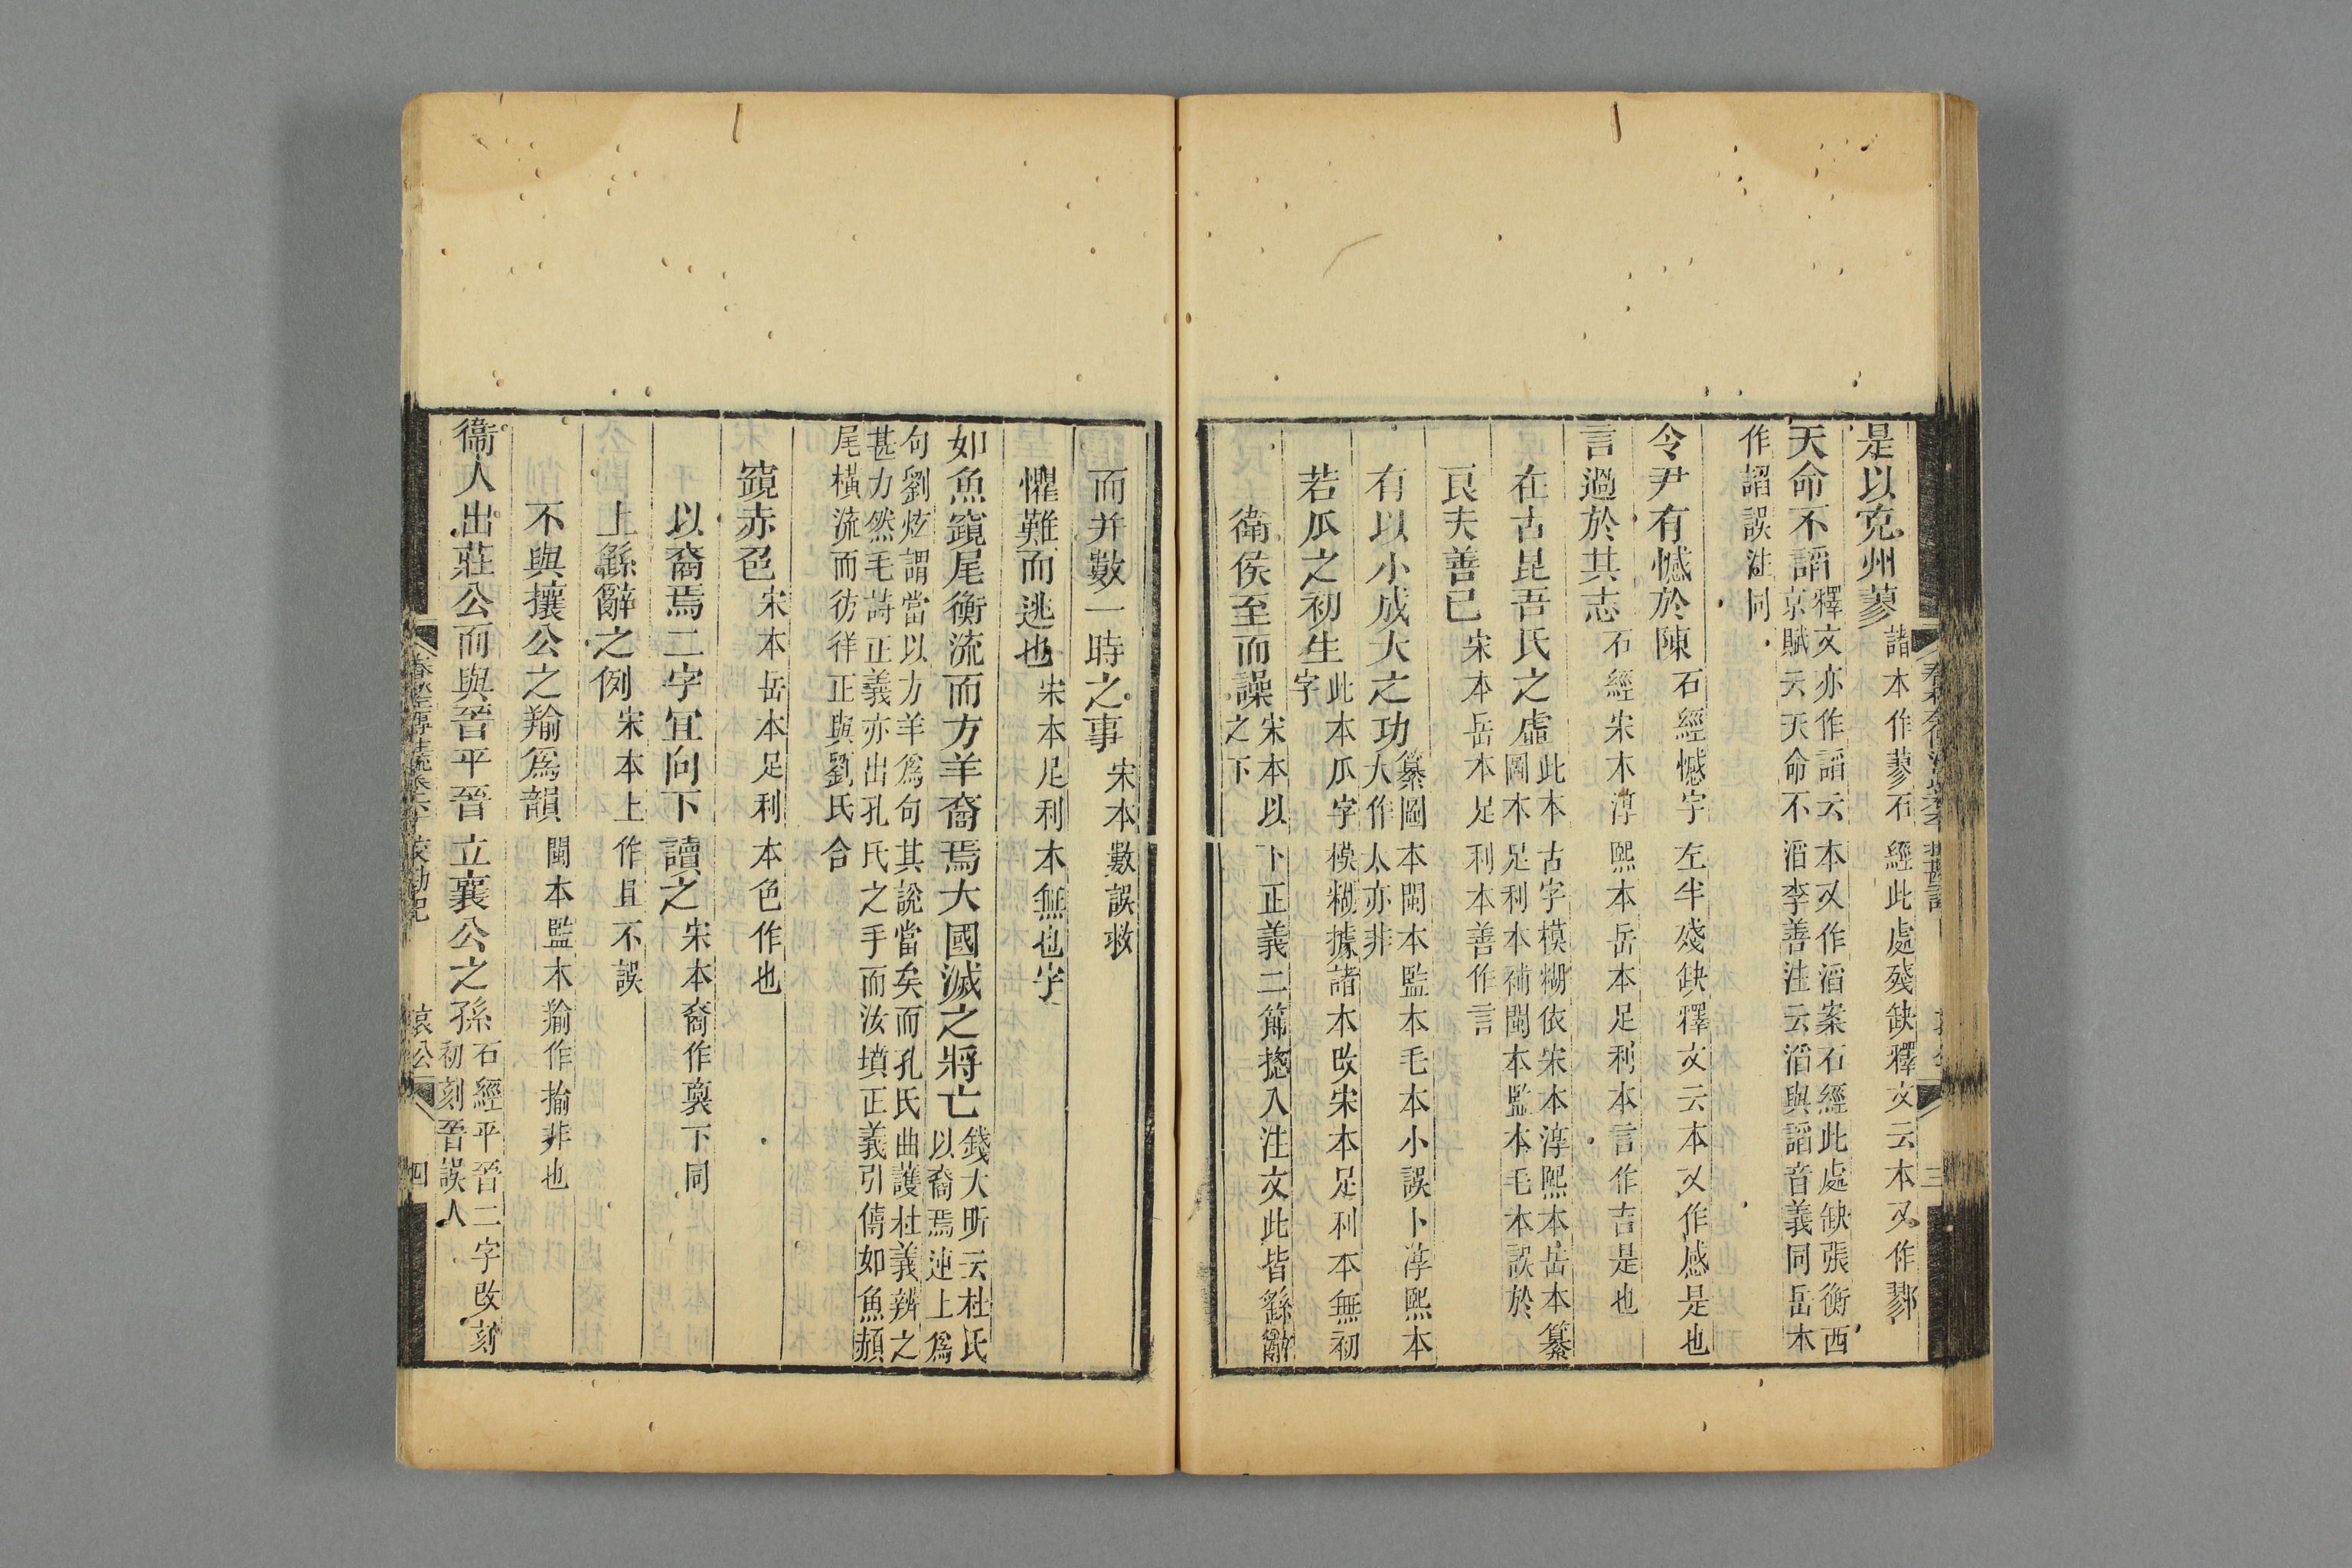 是以克州蓼諸本作蓼石經此處殘缺釋文云本又作鄝
天命不謟釋文亦作謟云本又作滔案石經此處缺張衡西
京賦天天命不滔李善注云滔與謟音義同岳本
作謟誤注同
令尹有憾於陳石經憾字左半殘缺釋文云本又作感是也
言過於其志石經宋本淳熙本岳本足利本言作吉是也
在古昆吾氏之虛此本古字模糊依宋本淳熙本岳本纂
圖本足利本補閩本監本毛本誤於
良夫善已宋本岳本足利本善作言
有以小成大之功纂圖本閩本監本毛本小誤卜淳熙本
大作太亦非
若瓜之初生此本瓜字模糊據諸本改宋本足利本無初
字
衛侯至而譟宋本以卜正義二節揔入注文此皆繇辭
之下
而并數一時之事宋本數誤救
懼難而逃也宋本足利本無也字
如魚竀尾衡流而方羊裔焉大國滅之將亡錢大昕云杜氏
以裔焉連上爲
句劉炫謂當以方羊爲句其說當矣而孔氏曲護杜義辨之
甚力然毛詩正義亦出孔氏之手而汝墳正義引傳如魚赬
尾橫流而彷徉正與劉氏合
竀赤色宋本岳本足利本色作也
以裔焉二字宜向下讀之宋本裔作裒下同
上繇辭之例宋本上作且不誤
不與攘公之羭爲韻閩本監本羭作揄非也
衞人出莊公而與晉平晉立襄公之孫石經平晉二字改刻
初刻晉誤人
春秋左傳注疏卷六十校勘記
哀公
四